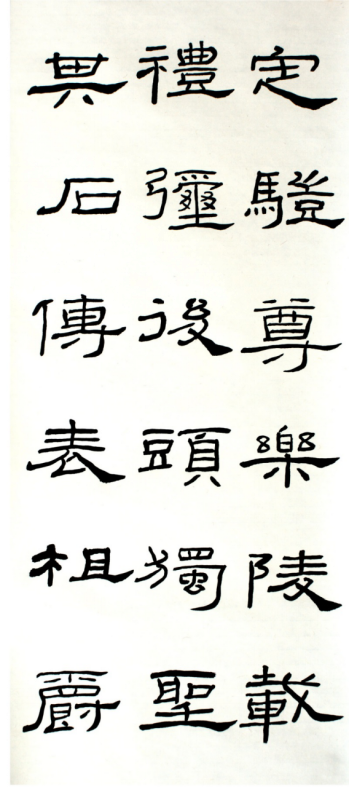 定驗尊樂陵載
禮彌後頭獨聖
其石傳表柤爵